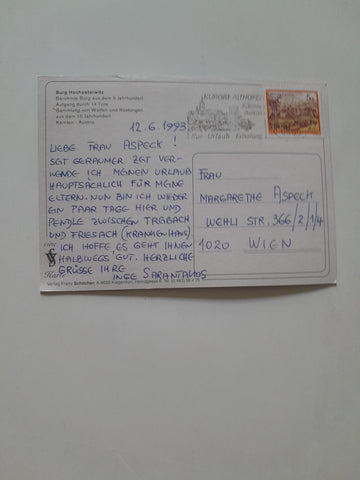 Burg Hochosterwitz
Berühmte Burg aus dem 9. Jahrhundert
Aufgang durch 14 Tore
Sammlung von Waffen und Rüstungen
aus dem 16. Jahrhundert
Kärnten - Austria
KURORT ALTHOFEN
Kur Urlaub Erholung
12.6.1993
LIEBE FRAU ASPECK!
SEIT GERAUMER ZEIT VER-
WENDE ICH MEINEN URLAUB
HAUPTSÄCHLICH FÜR MEINE
ELTERN. NUN BIN ICH WIEDER
EIN PAAR TAGE HIER UND
PENDLE ZWISCHEN TREIBACH
UND FRIESACH (KRANKENHAUS).
ICH HOFFE ES GEHT IHNEN
HALBWEGS GUT. HERZLICHE
GRÜSSE IHRE
INGE SARANTAKOS
FRAU
MARGARETHE ASPECK
WEHLI STR. 366/2/1/4
1020 WIEN
eine
VFS
Karte
Verlag Franz Schilcher, A-9020 Klagenfurt